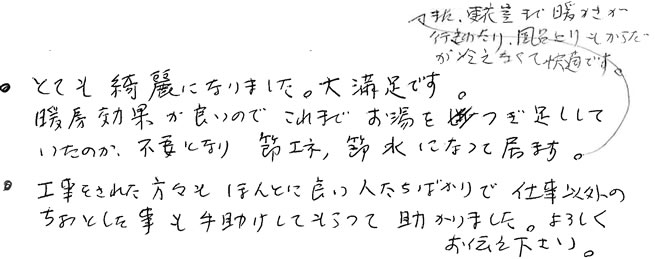 また、更衣室まで暖かさが
行きわたり、風呂上りもからだ
が冷えなくて快適です。
• とても綺麗になりました。大満足です。
暖房効果が良いのでこれまでお湯をつぎ足しして
いたのが、不要となり 節エネ, 節水になって居ます。
• 工事をされた方々も ほんとに良い人たちばかりで 仕事以外の
ちょっとした事も手助けしてもらって 助かりました。よろしく
お伝え下さい。